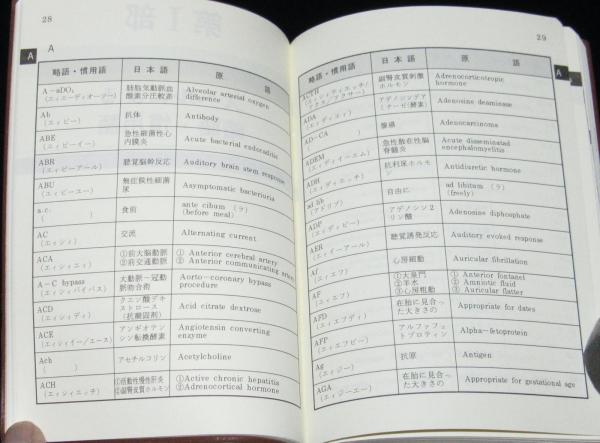 28
A
A
略語・慣用語 日本語 原語
A－aDO₂ 肺胞気動脈血 Alveolar arterial oxygen
(エィエーディオーツー) 酸素分圧較素 difference
Ab 抗体 Antibody
(エィビー)
ABE 急性細菌性心 Acute bacterial endocarditis
(エィビーイー) 内膜炎
ABR 聴覚脳幹反応 Auditory brain stem response
(エィビーアール)
ABU 無症候性細菌 Asymptomatic bacteriuria
(エィビーユー) 尿
a.c. 食前 ante cibum （ラ）
( ) (before meal)
AC 交流 Alternating current
(エィシィ)
ACA ①前大脳動脈 ① Anterior cerebral artery
(エィシィエィ) ②前交通動脈 ② Anterior communicating artery
A－C bypass 大動脈－冠動 Aorto－coronary bypass
(エィシィバイパス) 脈吻合術 procedure
ACD クエン酸デキ Acid citrate dextrose
(エィシィディ) ストロース
(抗凝固剤)
ACE アンギオテン Angiotensin converting
(エィシィイー/エース) シン転換酵素 enzyme
Ach アセチルコリン Acetylcholine
( )
ACH ①活動性慢性肝炎 ①Active chronic hepatitis
(エィシィエィチ) ②副腎皮質ホルモン ②Adrenocortical hormone
29
A
略語・慣用語 日本語 原語
ACTH 副腎皮質刺激 Adrenocorticotropic
ホルモン hormone
ADA アデノシンデア Adenosine deaminase
(エィディエィ) ミナーゼ(酵素)
AD－CA 腺癌 Adenocarcinoma
( )
ADEM 急性散在性脳 Acute disseminated
(エィディイーエム) 脊髄炎 encephalomyelitis
ADH 抗利尿ホルモ Antidiuretic hormone
(エィディエィチ) ン
ad lib 自由に ad libitum （ラ）
(アドリブ) (freely)
ADP アデノシン2 Adenosine diphosphate
(エィディピー) リン酸
AER 聴覚誘発反応 Auditory evoked response
(エィイーアール)
Af 心房細動 Auricular fibrillation
(エィエフ)
AF ①大泉門 ① Anterior fontanel
(エィエフ) ②羊水 ② Amniotic fluid
③心房粗動 ③ Auricular flatter
AFD 在胎に見合っ Appropriate for dates
(エィエフディ) た大きさの
AFP アルファフェ Alpha－fetoprotein
(エィエフピー) トプロティン
Ag 抗原 Antigen
(エィジー)
AGA 在胎に見合っ Appropriate for gestational age
(エィジーエー) た大きさの